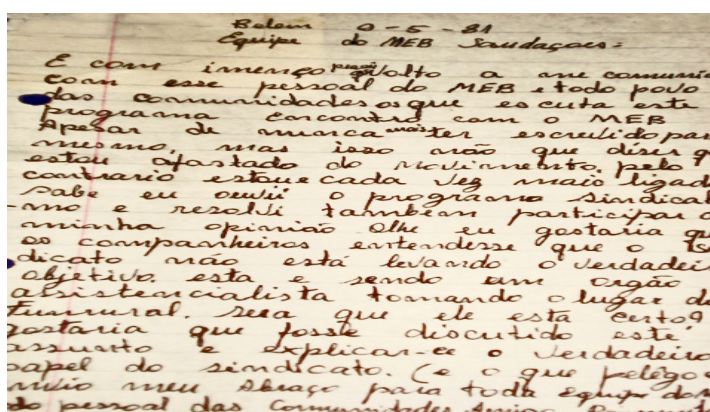 Belem 9-5-81
Equipe do MEB Saudações=
E com imenço que volto a me comunica
com esse pessoal do MEB e todo povo
das comunidades os que escuta este
programa encontro com o MEB
Apesar de nunca mais ter escrevido par
mesmo, mas isso não que diser q
estou afastado do movimento, pelo
contrario estou cada vez mais ligad
Sabe eu ouvii o programa sindical
mo e resolvi tambem participar
minha opinião Olhe eu gostaria qu
os companheiros entendesse que o
dicato não está levando o verdadei
objetivo. esta e sendo um orgão
assistencialista tomando o lugar d
Funrural. sera que ele está certo?
gostaria que fosse discutido este
assunto e explicar-ce o verdadeiro
papel do sindicato. (e o que pelêgo
meu Abraço para toda equipe do
do pessoal das comunidades